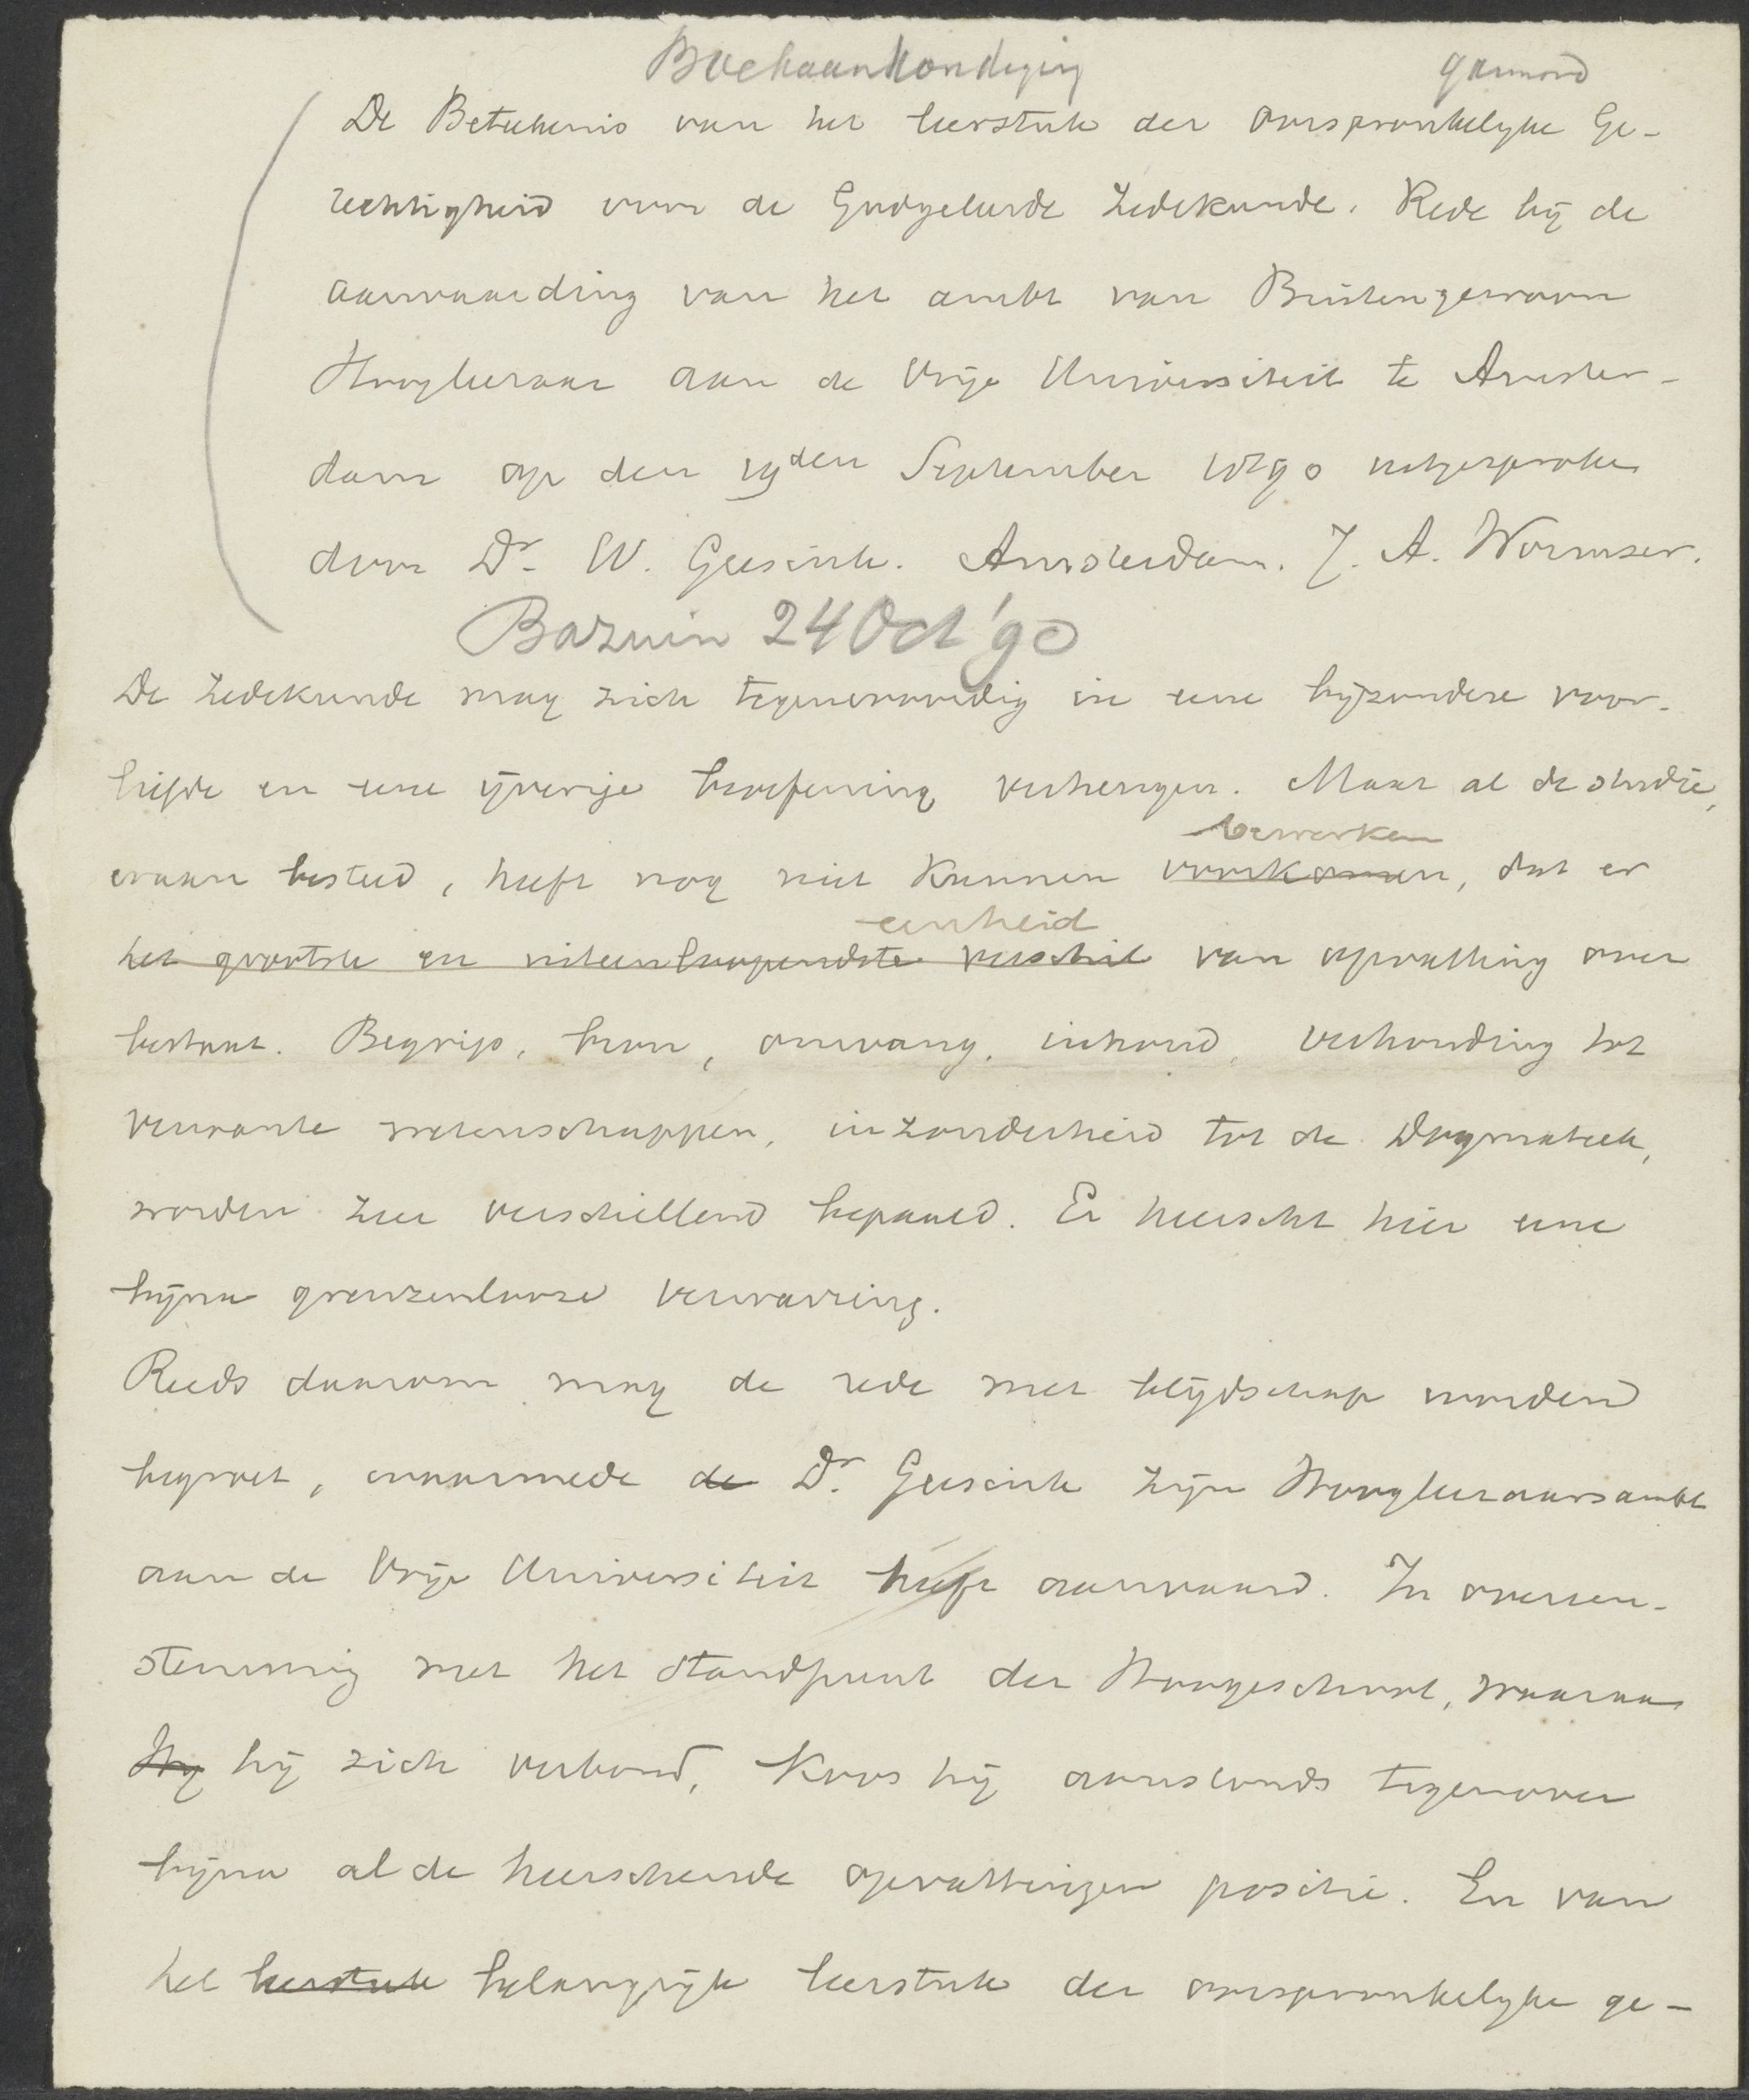 Boekaankondiging garmond
De Beteekenis van het leerstuk der oorspronkelyke Ge-
rechtigheid voor de Godgeleerde Zedekunde. Rede bij de
aanvaarding van het ambt van Buitengewoon
Hoogleeraar aan de Vrije Universiteit te Amster-
dam op den 19den September 1890 uitgesproken
door Dr. W. Geesink. Amsterdam. J. A. Wormser.
Bazuin 24 Oct '90
De Zedekunde mag zich tegenwoordig in eene byzondere voor-
liefde en eene ijverige beoefening verheugen. Maar al de studie,
bewerken
eraan besteed, heeft nog niet kunnen voorkomen, dat er
eenheid
het grootste en uiteenloopendste verschil van opvatting over
bestaat. Begrip, bron, omvang, inhoud, verhouding tot
verwante wetenschappen, inzonderheid tot de Dogmatiek,
worden zeer verschillend bepaald. Er heerscht hier eene
bijna grenzenlooze verwarring.
Reeds daarom mag de rede met blijdschap worden
begroet, waarmede de Dr. Geesink zijn Hoogleeraarsambt
aan de Vrije Universiteit heeft aanvaard. In overeen-
stemming met het standpunt der Hoogeschool, waaraan
Hy hij zich verbond, koos hij aanstonds tegenover
bijna al de heerschende opvattingen positie. En van
het leerstuk belangrijk leerstuk der oorspronkelyke ge-